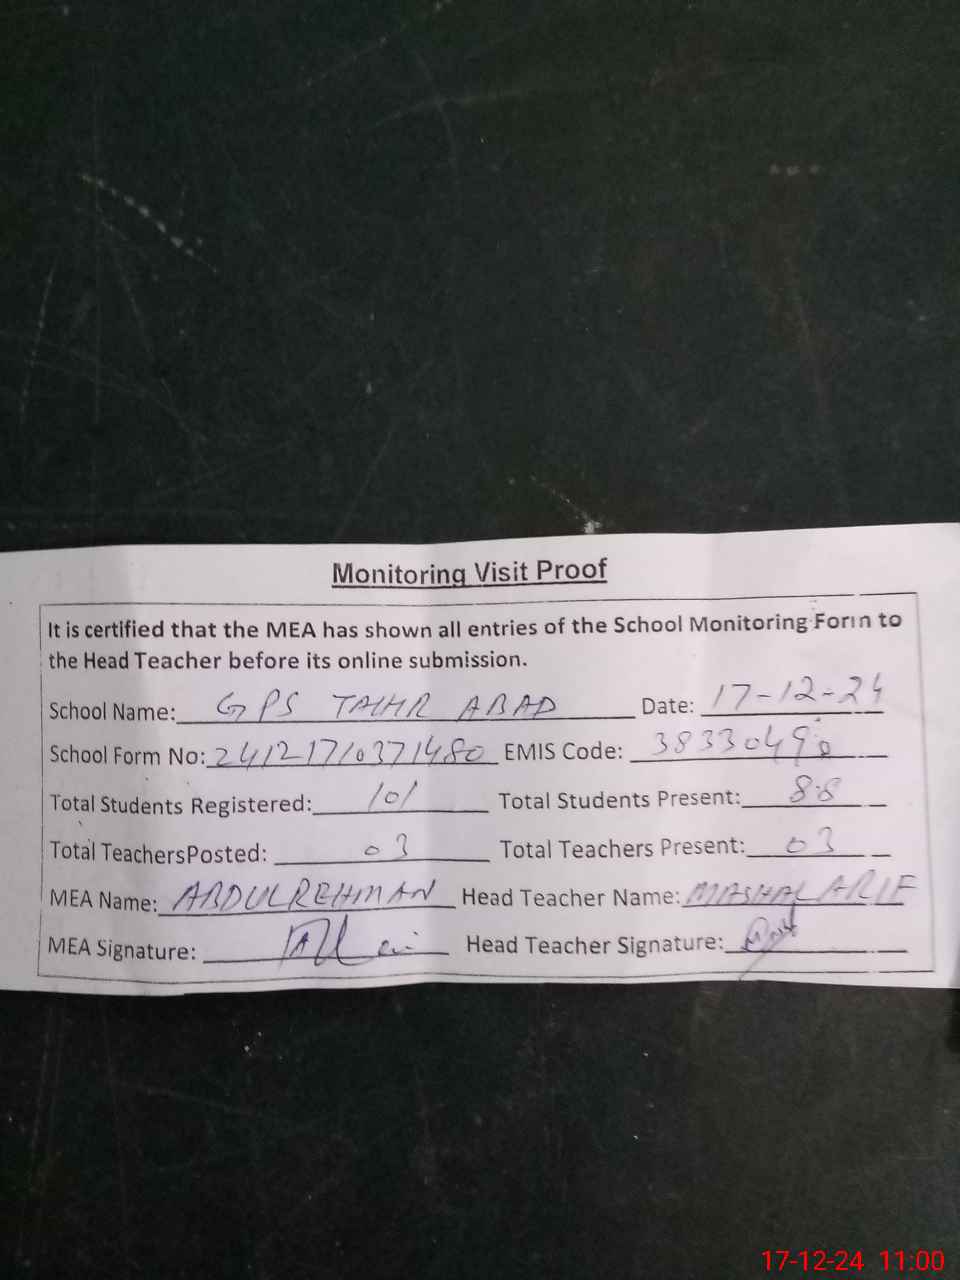 Monitoring Visit Proof
It is certified that the MEA has shown all entries of the School Monitoring Form to
the Head Teacher before its online submission.
School Name: GPS TAHIR ABAD Date: 17-12-24
School Form No: 24121710371480 EMIS Code: 38330490
Total Students Registered: 101 Total Students Present: 88
Total TeachersPosted: 03 Total Teachers Present: 03
MEA Name: ABDULREHMAN Head Teacher Name: MASHAL ARIF
MEA Signature: Head Teacher Signature:
17-12-24 11:00